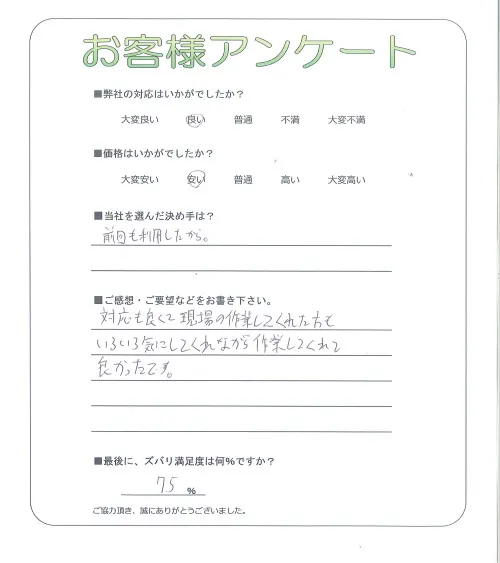 お客様アンケート
■弊社の対応はいかがでしたか？
大変良い 良い 普通 不満 大変不満
■価格はいかがでしたか？
大変安い 安い 普通 高い 大変高い
■当社を選んだ決め手は？
前回も利用したから。
■ご感想・ご要望などをお書き下さい。
対応も良くて現場の作業してくれた方も
いろいろ気にしてくれながら作業してくれて
良かったです。
■最後に、ズバリ満足度は何%ですか？
75 %
ご協力頂き、誠にありがとうございました。